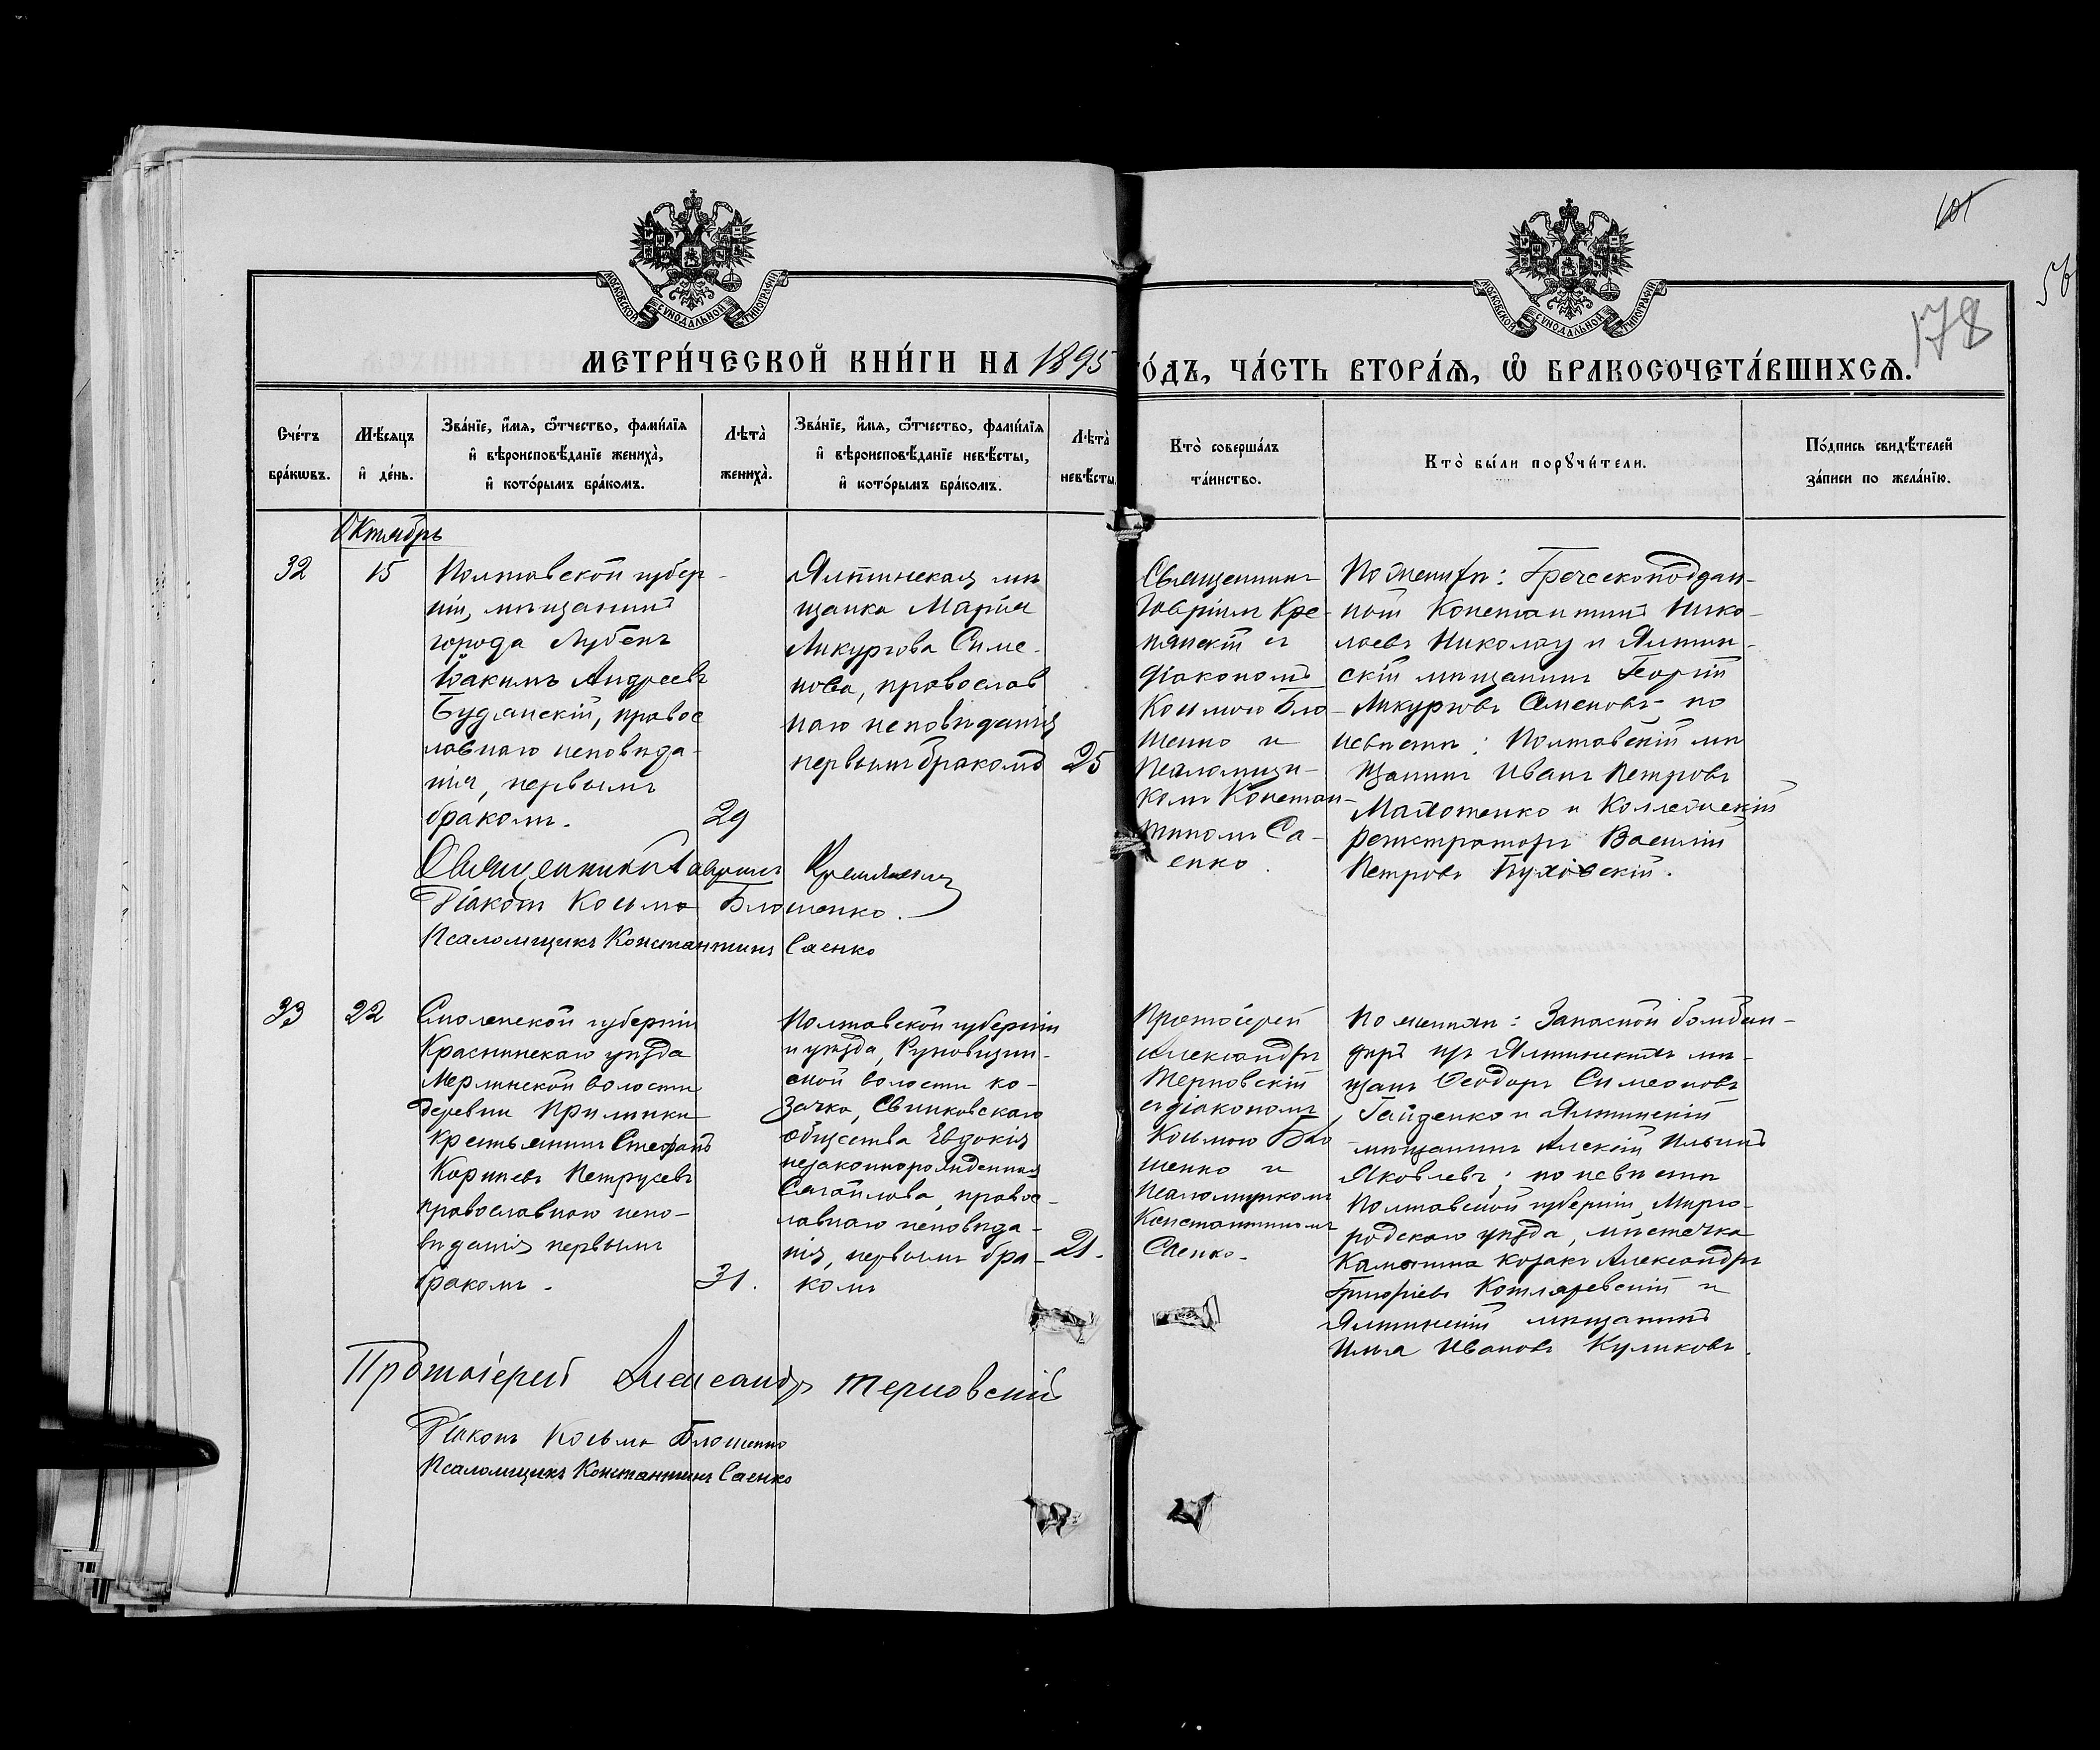 МОСКОВСКОЙ СУНОДАЛЬНОЙ ТИПОГРАФІИ
МОСКОВСКОЙ СУНОДАЛЬНОЙ ТИПОГРАФІИ
101
56
178
МЕТРИ́ЧЕСКОЙ КНИ́ГИ НА 1895
ГО́ДЪ, ЧА́СТЬ ВТОРА́Ѧ, Ѡ҆ БРАКОСОЧЕТА́ВШИХСѦ.
Сче́тъ бра́кѡвъ.
Мѣ́сѧцъ и҆ де́нь.
Зва́нїе, и҆́мѧ, ѻ҆́тчество, фами́лїѧ
и҆ вѣроисповѣ́данїе жениха̀,
и҆ кото́рымъ бра́комъ.
Лѣта̀ жениха̀.
Зва́нїе, и҆́мѧ, ѻ҆́тчество, фами́лїѧ
и҆ вѣроисповѣ́данїе невѣ́сты,
и҆ кото́рымъ бра́комъ.
Лѣта̀ невѣ́сты.
Кто̀ соверша́лъ та́инство.
Кто̀ бы́ли порꙋчи́тели.
По́дпись свидѣ́телей за́писи по жела́нїю.
Октябрь
32
15
Полтавской губер-
ніи, мѣщанинъ
города Лубенъ
Іоакимъ Андреевъ
Будянскій, правос
лавнаго исповѣда-
нія, первымъ
бракомъ.
29
Ялтинская мѣ
щанка Марія
Ликургова Симе-
нова, православ
наго исповѣданія
первымъ бракомъ
25
Священникъ
Гавріилъ Кре-
мянскій съ
діакономъ
Косьмою Бло-
шенко и
псаломщи-
комъ Констан-
тиномъ Са-
енко
По женихѣ: Греческоподдан-
ный Константинъ Нико-
лаевъ Николау и Ялтин-
скій мѣщанинъ Георгій
Ликурговъ Семеновъ по
невѣстѣ: Полтавскій мѣ
щанинъ Иванъ Петровъ
и Коллежскій
регистраторъ Василій
Петровъ Буховскій.
Священникъ Гавріилъ
Діаконъ Косьма Блошенко.
Псаломщикъ Константинъ Саенко
33
22
Смоленской губерніи
Краснинскаго уѣзда
Мерлинской волости
деревни Прилипки
крестьянинъ Стефанъ
Корнѣевъ Петрусевъ
православнаго испо-
вѣданія первымъ
бракомъ.
31.
Полтавской губерніи
и уѣзда, Руновщин-
ской волости ко-
зачка, Свинковскаго
общества Евдокія
незаконнорожденная
Самойлова, правос-
лавнаго исповѣда-
нія, первымъ бра-
комъ
21.
Протоіерей
Александръ
Терновскій
съ діакономъ
Косьмою Бло
шенко и
псаломщикомъ
Константиномъ
Саенко.
По женихѣ: Запасной бомбан-
диръ изъ Ялтинскихъ мѣ-
щанъ Ѳеодоръ Симеоновъ
Гайденко и Ялтинскій
мѣщанинъ Алексій Ильинъ
Яковлевъ; по невѣстѣ
Полтавской губерніи, Мирго-
родскаго уѣзда, мѣстечка
Камышна козакъ Александръ
Григоріевъ Котляревскій и
Ялтинскій мѣщанинъ
Илья Ивановъ Куликовъ.
Протоіерей Александръ Терновскій
Діаконъ Косьма Блошенко
Псаломщикъ Константинъ Саенко